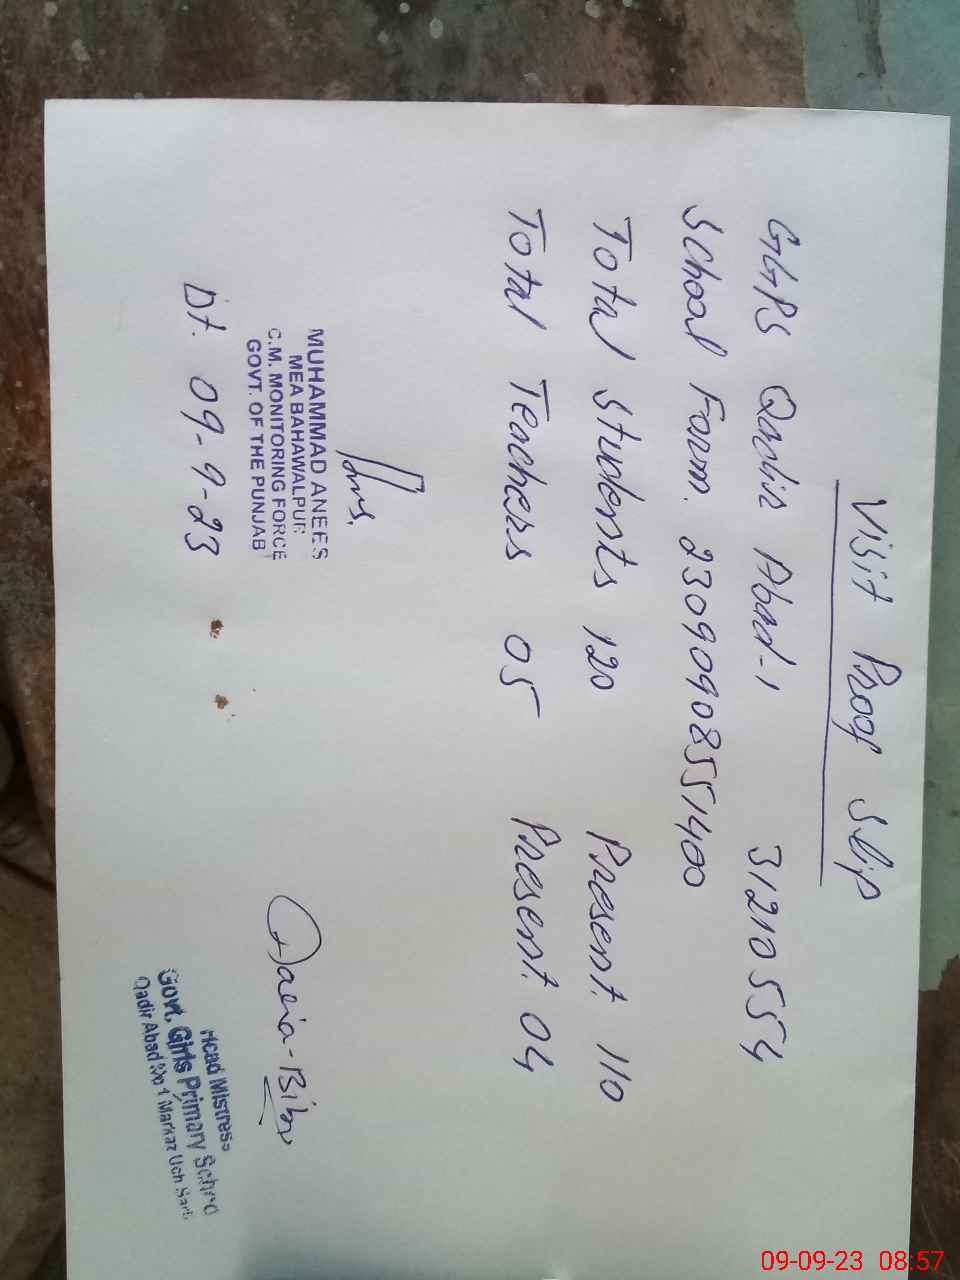 Visit Proof Slip
GGPS Qadir Abad-1 31210554
School Farm. 23090908551400
Total Students 120 Present. 110
Total Teachers 05 Present. 04
Dt. 09-9-23
MUHAMMAD ANEES
MEA BAHAWALPUR
C.M. MONITORING FORCE
GOVT. OF THE PUNJAB
Bibi
Head Mistress
Govt. Girls Primary School
Qadir Abad No 1 Markaz Uch
09-09-23 08:57